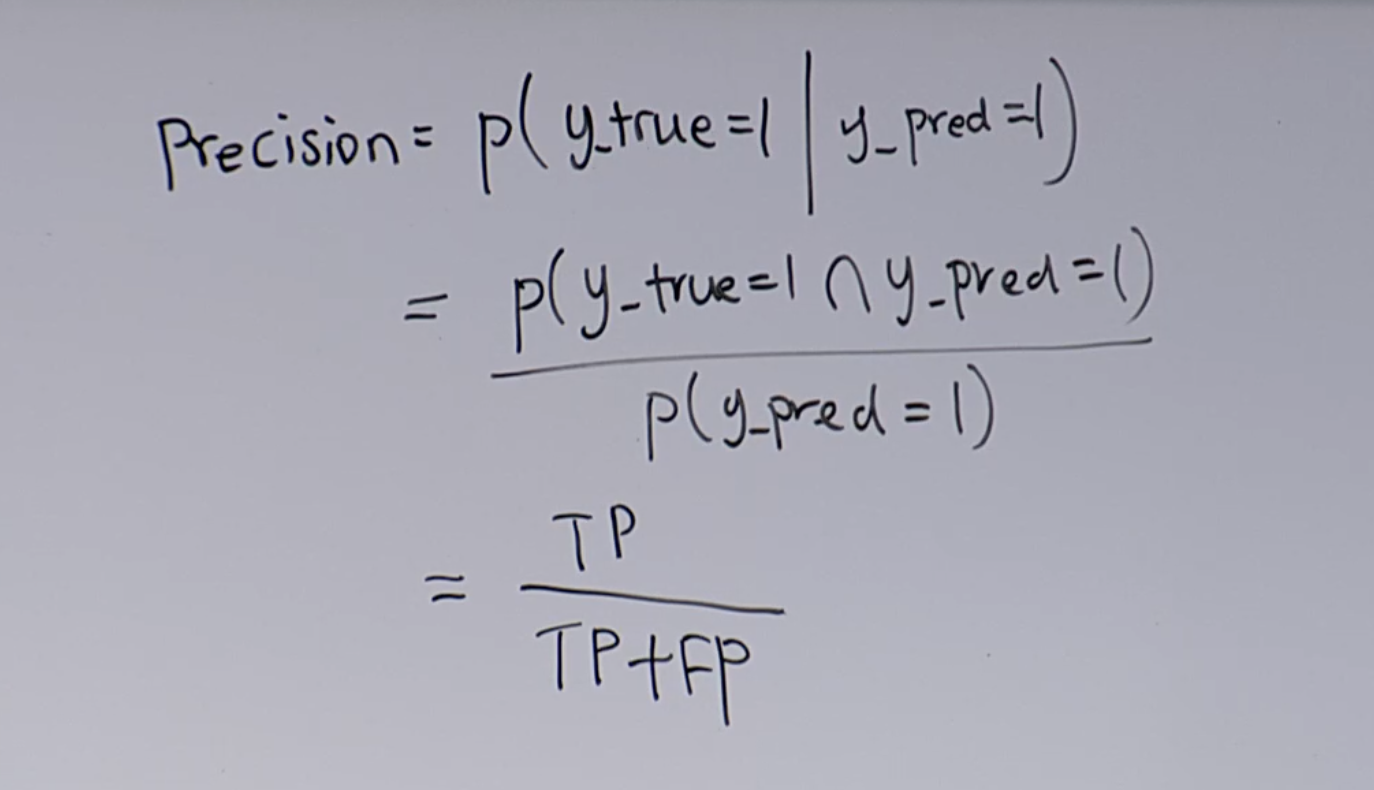 Precision = p( y_true=1 | y_pred=1)
= p(y_true=1 ∩ y_pred=1)
p(y_pred=1)
= TP
TP+FP